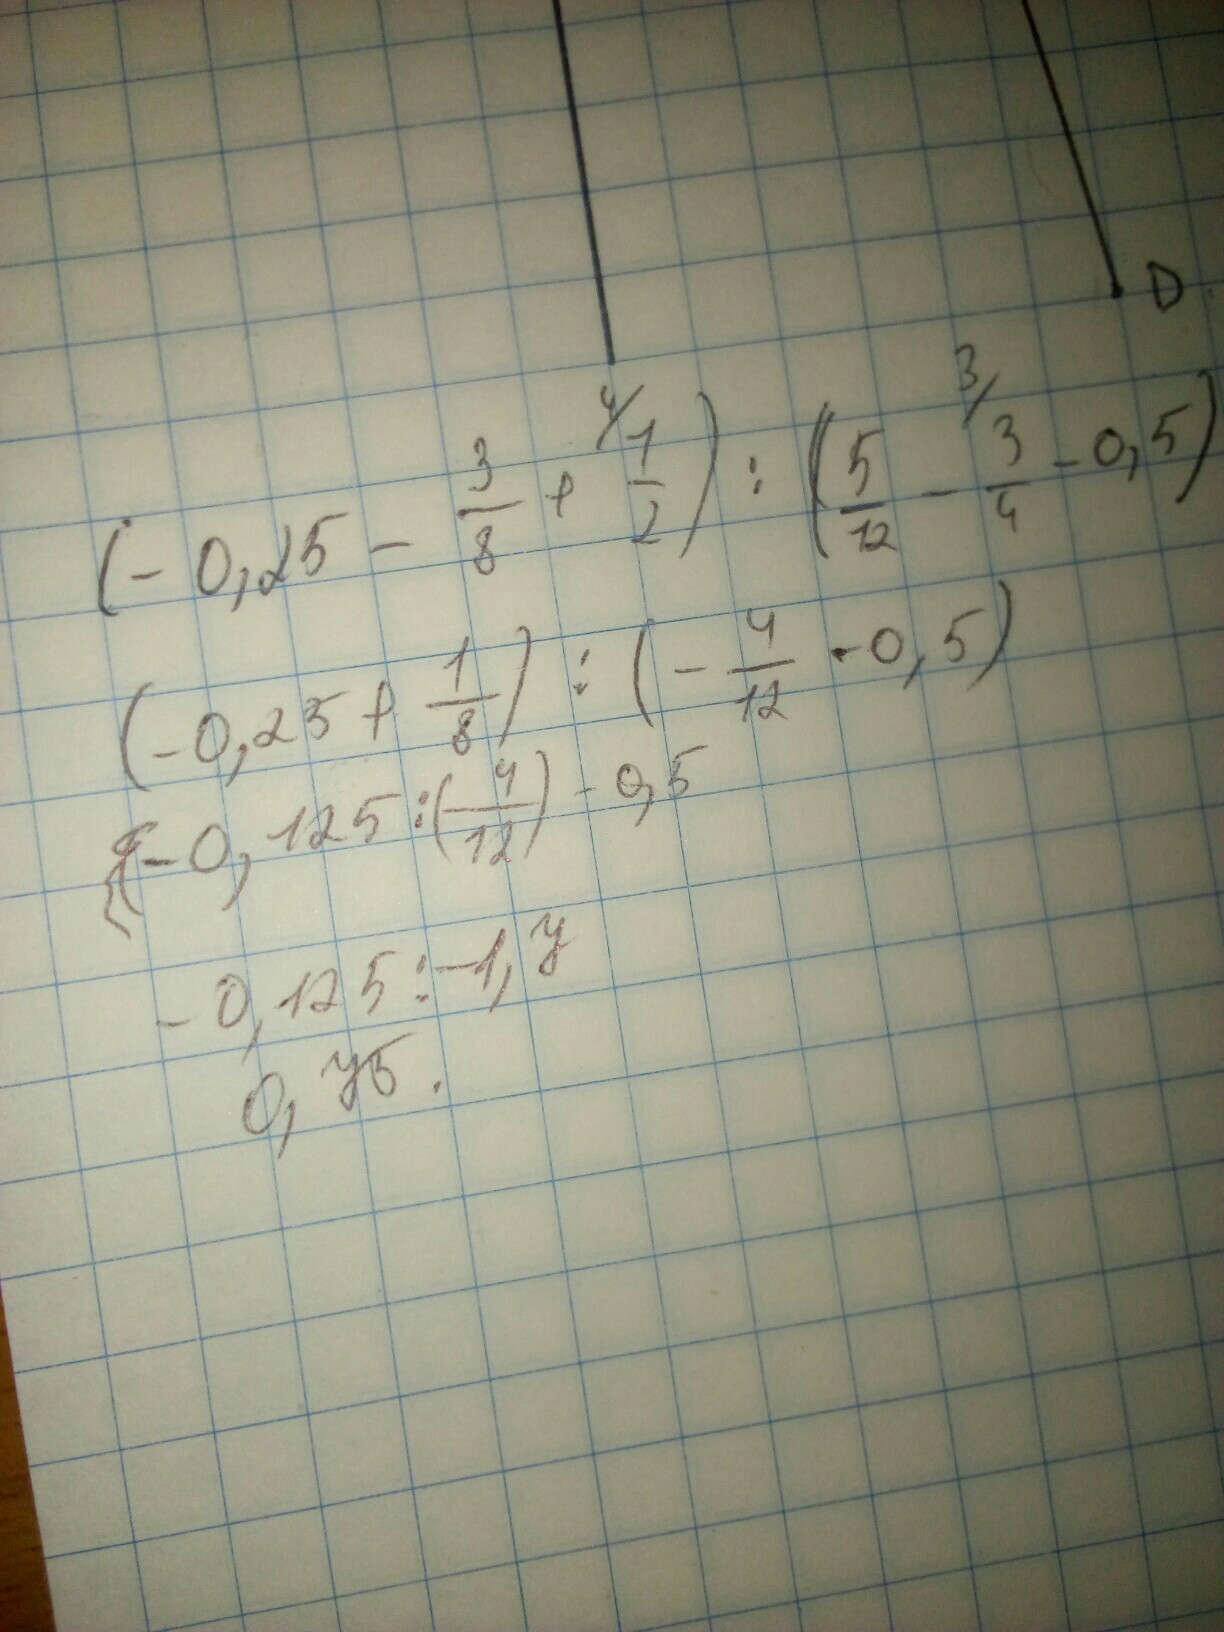 D
(-0,25 - 3/8 + 4/ 1/2) : (5/12 - 3/ 3/4 - 0,5)
(-0,25 + 1/8) : (- 4/12 - 0,5)
(-0,125 : (- 4/12) - 0,5
-0,125 : -1,y
0,y5.